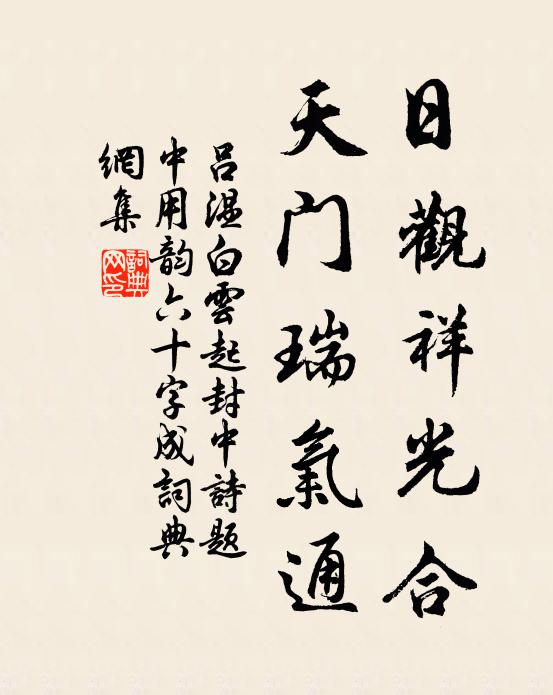 日觀祥光合
天门瑞氣通
吕温白雲起封中詩題
中用韵六十字成詞典
網集
詞典网印